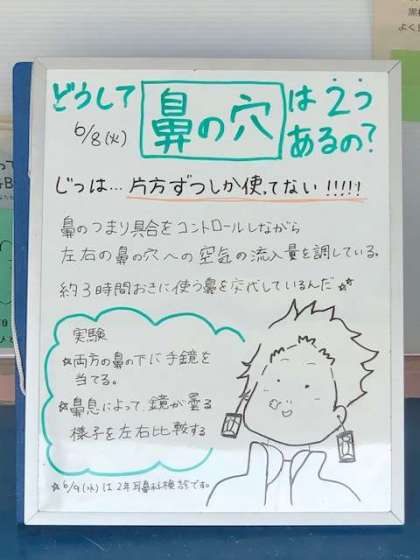 どうして
6/8(火)
鼻の穴
は2つ
あるの?
じつは…片方ずつしか使ってない!!!!!
鼻のつまり具合をコントロールしながら
左右の鼻の穴への空気の流入量を調している。
約3時間おきに使う鼻を交代しているんだ☆☆
実験
☆両方の鼻の下に手鏡を
当てる。
☆鼻息によって鏡が曇る
様子を左右比較する
☆6/9(水)は2年耳鼻科検診です。